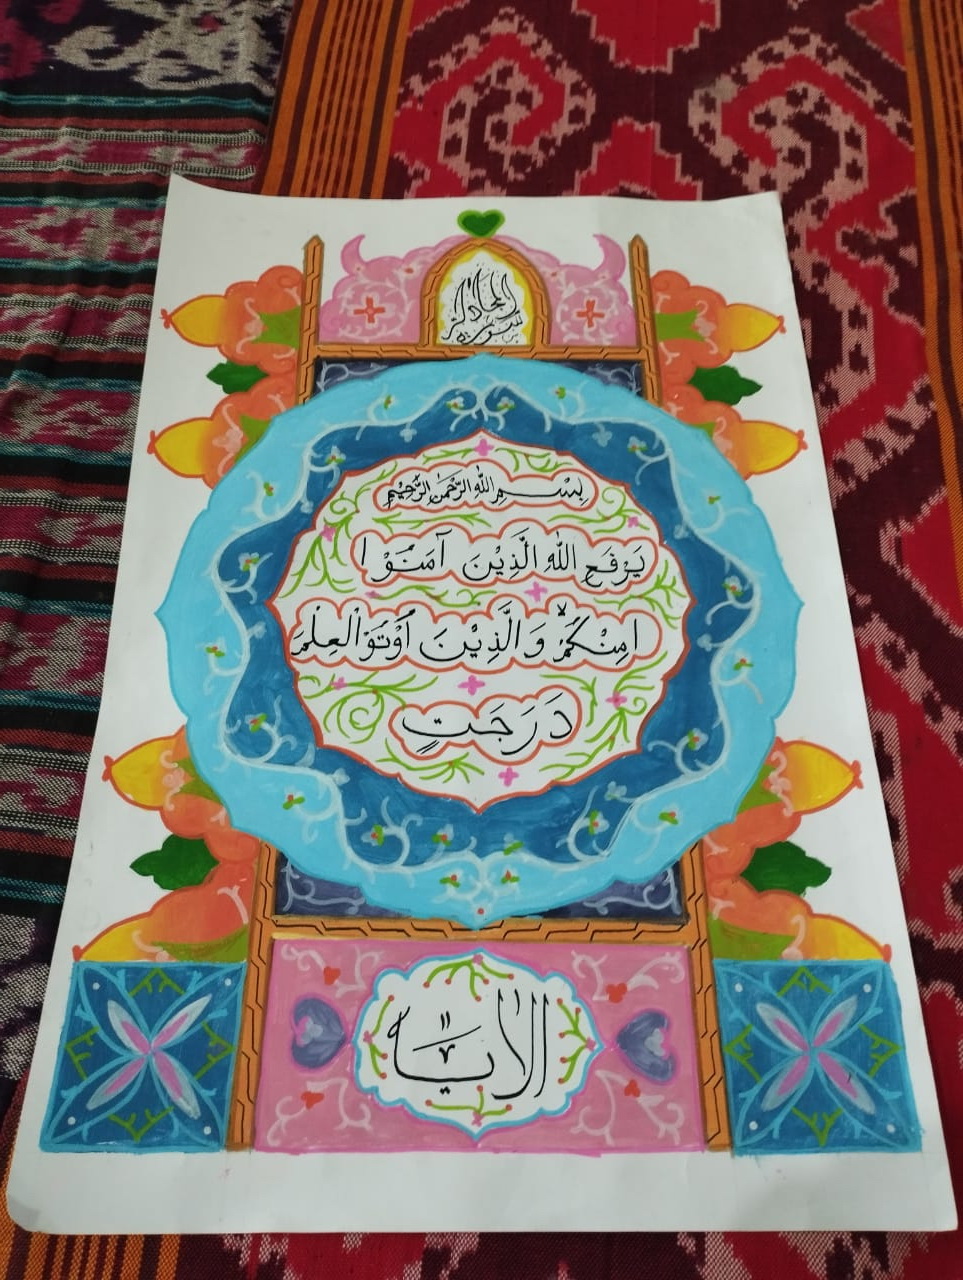 سورة المجادلة
بِسْمِ اللهِ الرَّحْمٰنِ الرَّحِيْمِ
يَرْفَعِ اللهُ الَّذِيْنَ آمَنُوْا
امِنْكُمْ وَالَّذِيْنَ اُوْتُوْالْعِلْمَ
دَرَجَتٍ
الاية ١١